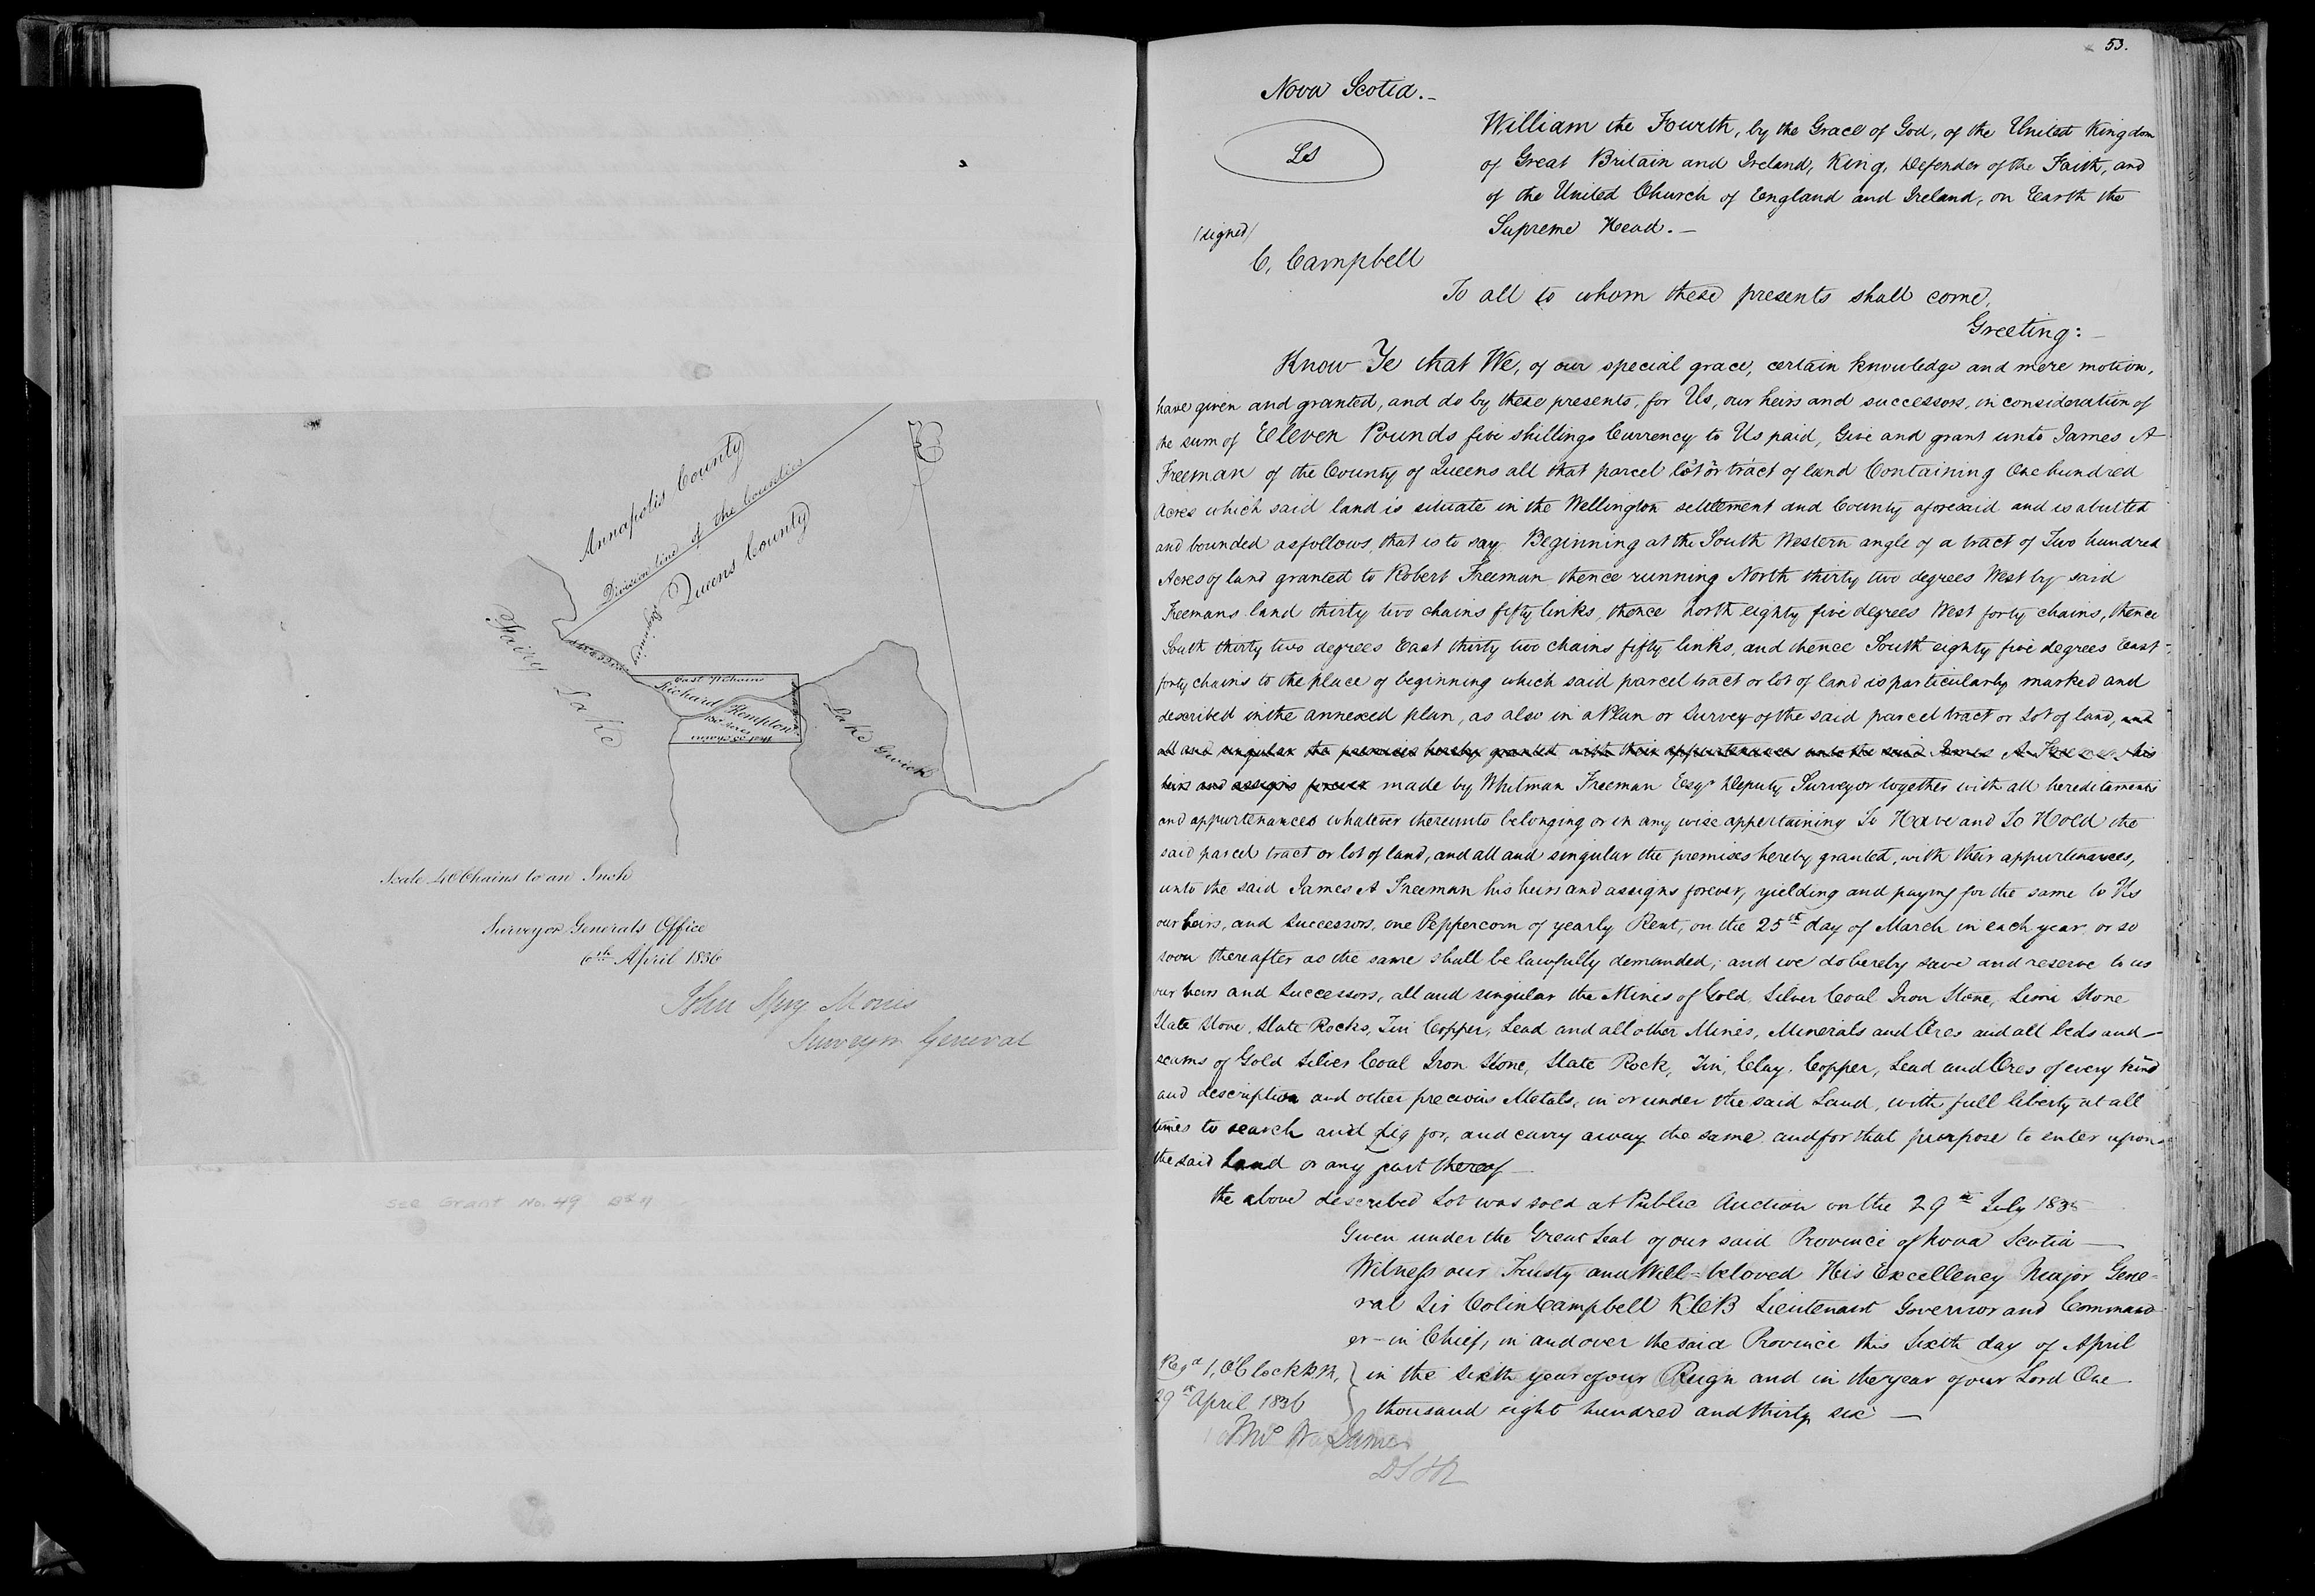 Annapolis County
Division line of the Counties
Queens County
Fairy Lake
East 72 chains
Richard Kempton
100 acres
West 55 chains
Lake
Scale 40 Chains to an Inch
Surveyor Generals Office
6th April 1836
John Spry Morris
Surveyor General
See Grant No. 49
53.
Nova Scotia.
LS
William the Fourth, by the Grace of God, of the United Kingdom
of Great Britain and Ireland, King, Defender of the Faith, and
of the United Church of England and Ireland, on Earth the
Supreme Head.
(signed)
C. Campbell
To all to whom these presents shall come,
Greeting:
Know Ye that We, of our special grace, certain knowledge and mere motion,
have given and granted, and do by these presents, for Us, our heirs and successors, in consideration of
the sum of Eleven Pounds five shillings Currency to Us paid, Give and grant unto James A
Freeman of the County of Queens all that parcel lot or tract of land Containing One hundred
Acres which said land is situate in the Wellington settlement and County aforesaid and is abutted
and bounded as follows, that is to say. Beginning at the South Western angle of a tract of Two hundred
Acres of land granted to Robert Freeman thence running North thirty two degrees West by said
Freemans land thirty two chains fifty links, thence North eighty five degrees West forty chains, thence
South thirty two degrees East thirty two chains fifty links, and thence South eighty five degrees East
forty chains to the place of beginning which said parcel tract or lot of land is particularly marked and
described in the annexed plan, as also in a Plan or Survey of the said parcel tract or Lot of land, and
all and singular the premises hereby granted with their appurtenances unto the said James A Freeman his
heirs and assigns forever made by Whitman Freeman Esqr Deputy Surveyor together with all hereditaments
and appurtenances whatever thereunto belonging or in any wise appertaining To Have and To Hold the
said parcel tract or lot of land, and all and singular the premises hereby granted, with their appurtenances,
unto the said James A Freeman his heirs and assigns forever, yielding and paying for the same to Us
our heirs, and Successors, one Peppercorn of yearly Rent, on the 25th day of March in each year, or so
soon thereafter as the same shall be lawfully demanded; and we do hereby save and reserve to us
our heirs and Successors, all and singular the Mines of Gold, Silver Coal Iron Stone, Lime Stone
Slate Stone, Slate Rocks, Tin Copper, Lead and all other Mines, Minerals and Ores and all beds and
seams of Gold Silver Coal Iron Stone, Slate Rock, Tin, Clay, Copper, Lead and Ores of every kind
and description and other precious Metals, in or under the said Land, with full liberty at all
times to search and dig for, and carry away the same, and for that purpose to enter upon
the said Land or any part thereof
the above described Lot was sold at Public Auction on the 29th July 1835
Given under the Great Seal of our said Province of Nova Scotia
Witness our Trusty and Well=beloved His Excellency Major Gene-
ral Sir Colin Campbell KCB Lieutenant Governor and Command
er-in Chief, in and over the said Province this Sixth day of April
Regd 1, O'Clock P.M,
in the sixth year of our Reign and in the year of our Lord One
29th April 1836
thousand eight hundred and thirty six
Thos W James